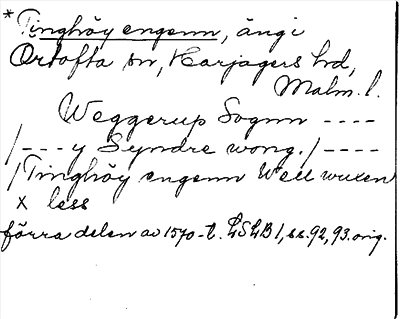 *Tinghöy engenn, äng i
Örtofta sn, Harjagers hd,
Malm. l.
Weggerup Sognn ----
/---y Syndre wong./----
/Tinghöy engenn Well wuxen
x less
förra delen av 1570-t. LSLB 1, ss. 92, 93. orig.